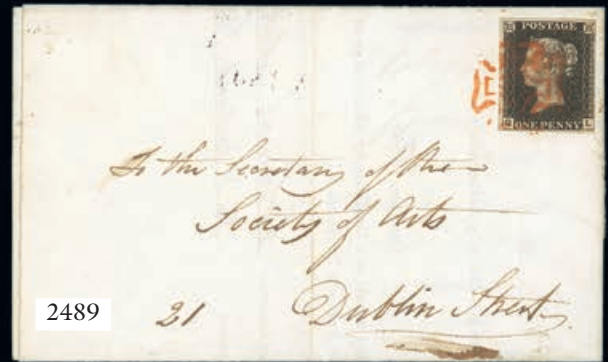 POSTAGE
ONE PENNY
L
To the Secretary of the
Society of Arts
21 Dublin Street
2489